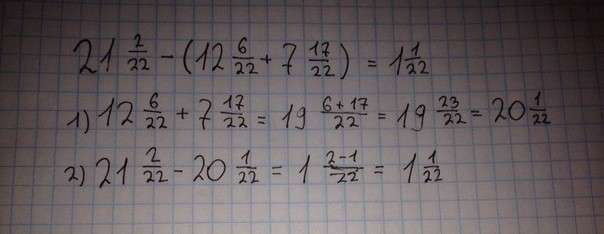 21 2/22 - (12 6/22 + 7 17/22) = 1 1/22
1) 12 6/22 + 7 17/22 = 19 6+17/22 = 19 23/22 = 20 1/22
2) 21 2/22 - 20 1/22 = 1 2-1/22 = 1 1/22